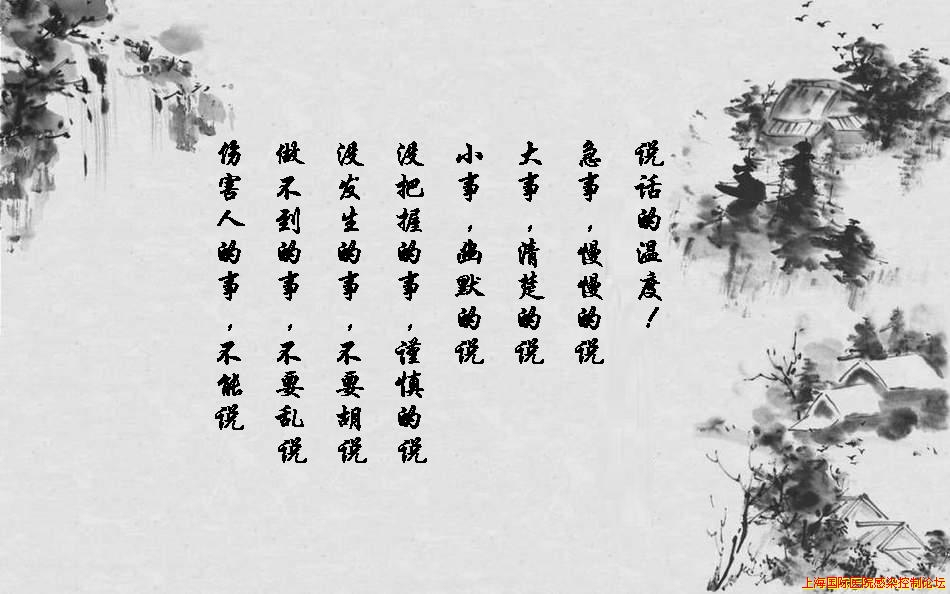 说话的温度！
急事，慢慢的说
大事，清楚的说
小事，幽默的说
没把握的事，谨慎的说
没发生的事，不要胡说
做不到的事，不要乱说
伤害人的事，不能说
上海国际医院感染控制论坛